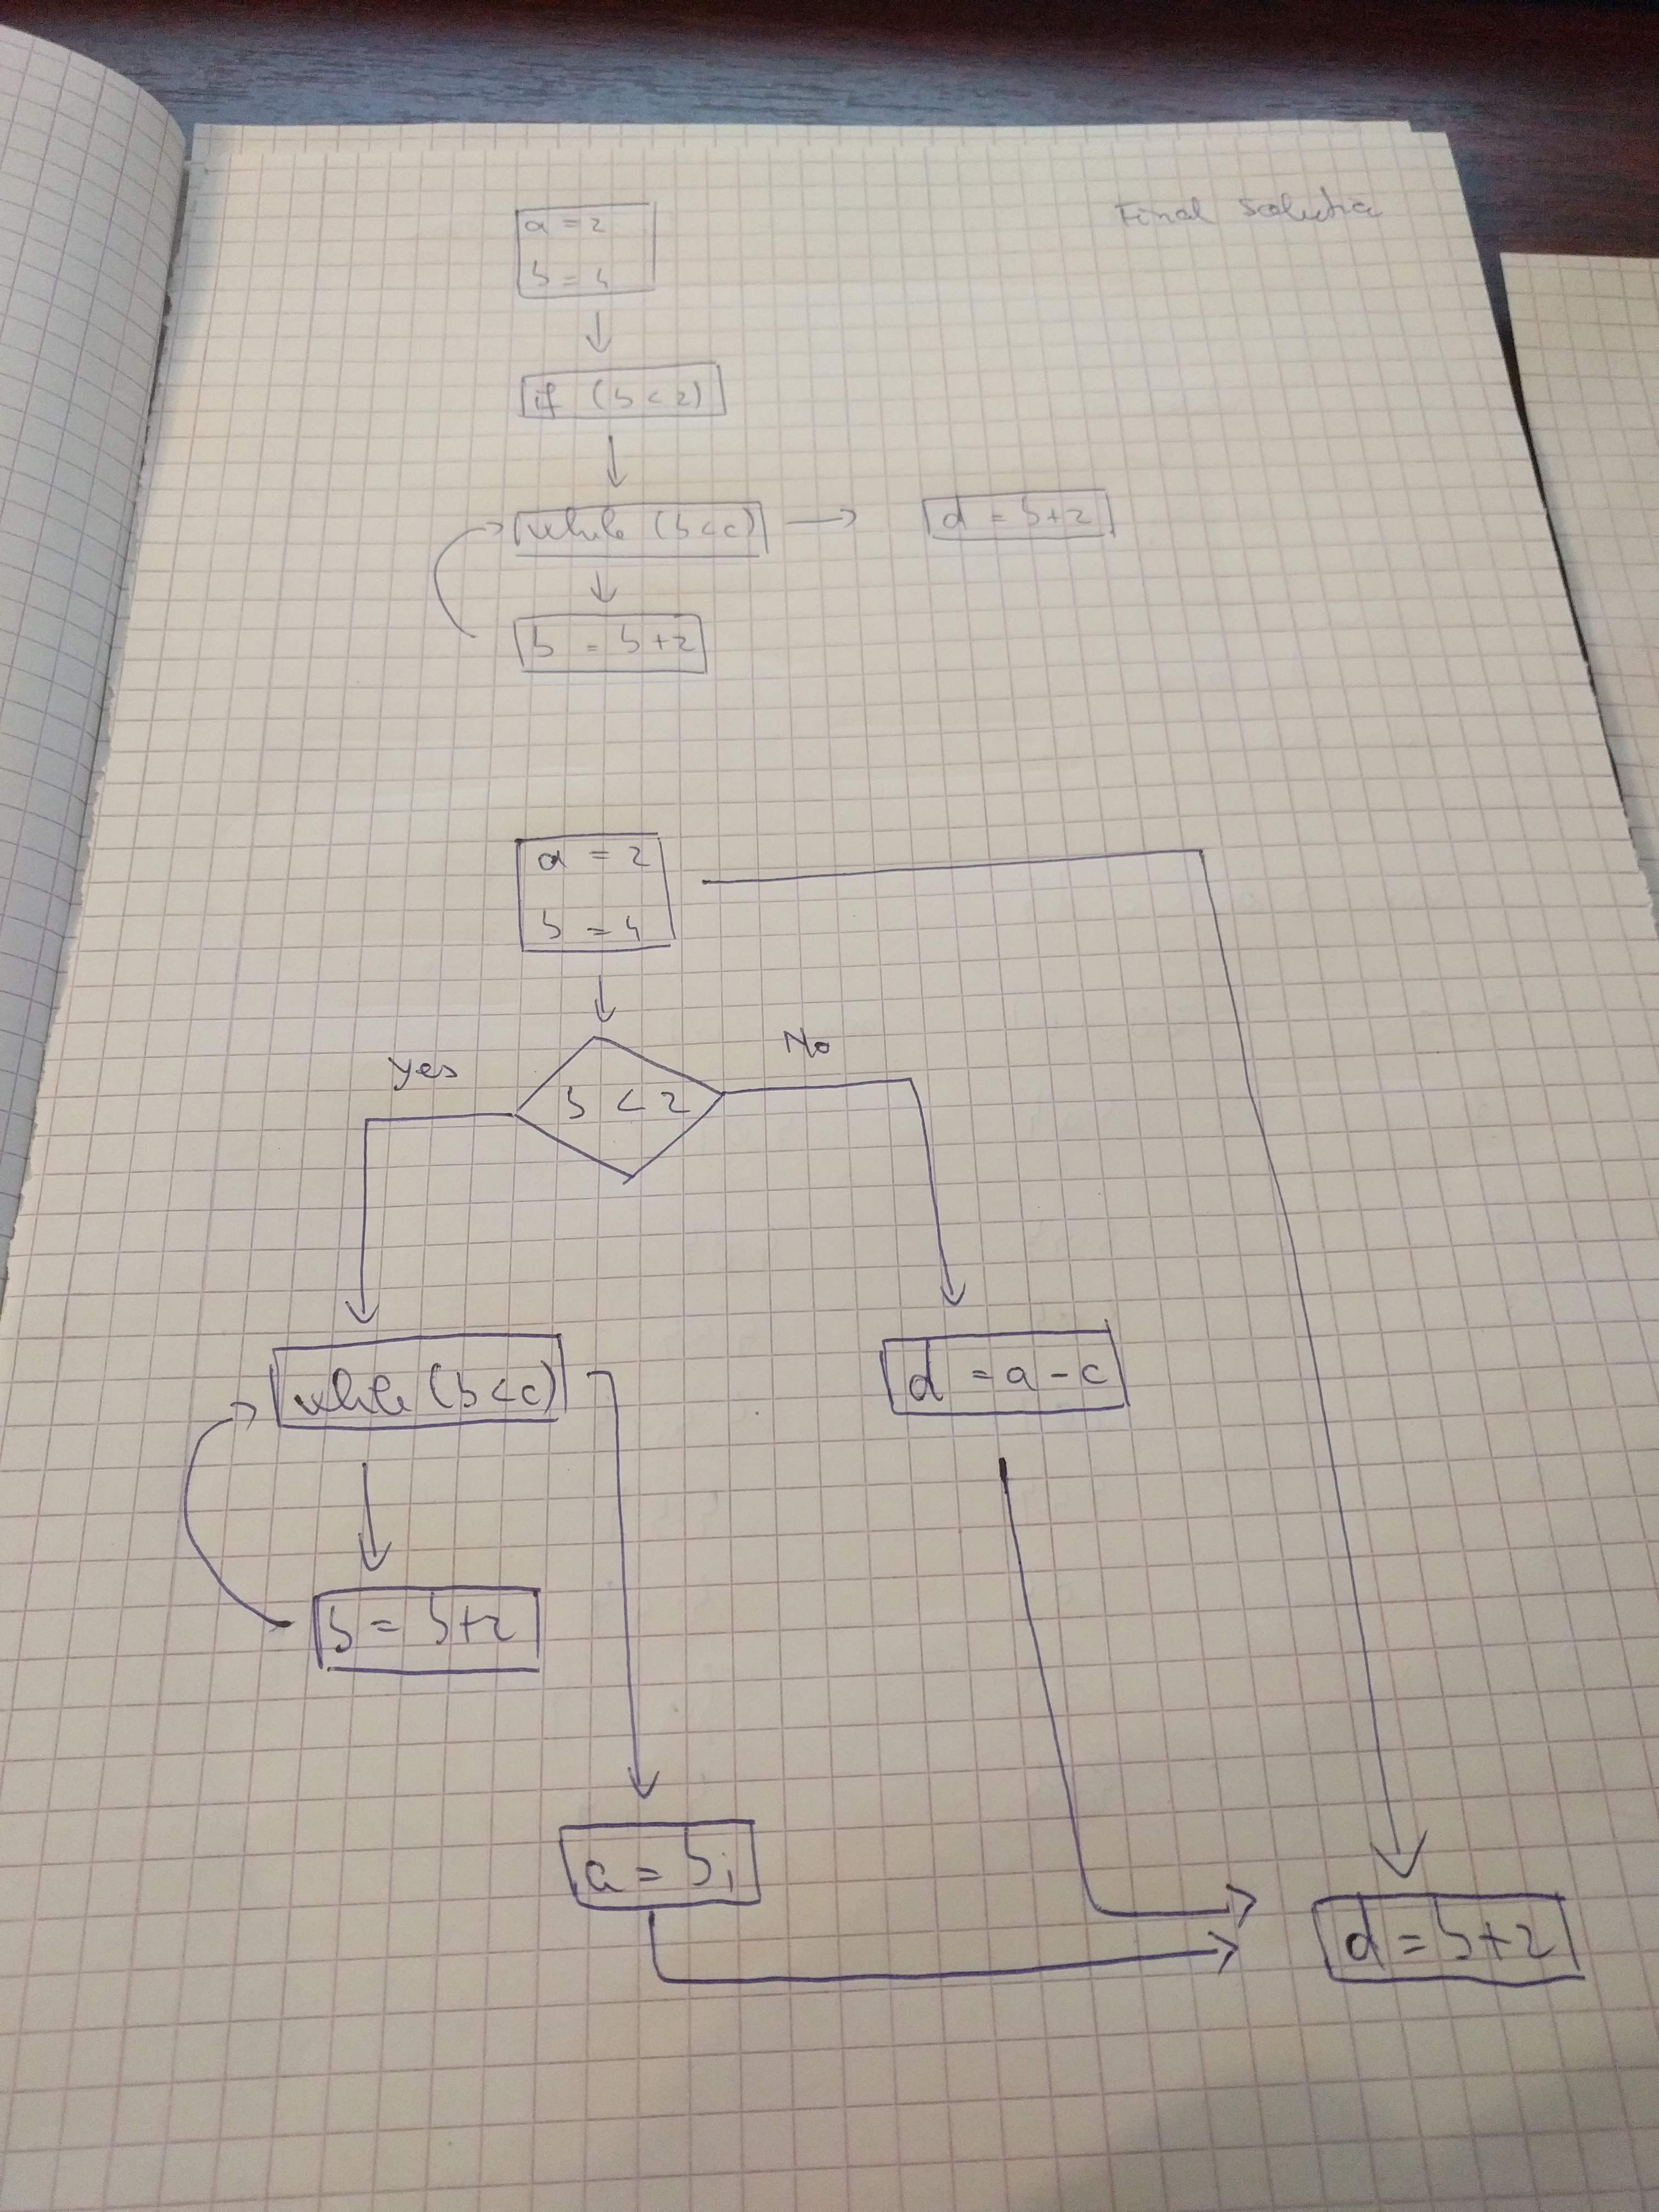 Final Solution
a = 2
b = 4
if (b < 2)
while (b < c)
d = b+2
b = b+2
a = 2
b = 4
yes
No
b < 2
while (b < c)
d = a - c
b = b+2
a = b;
d = b+2